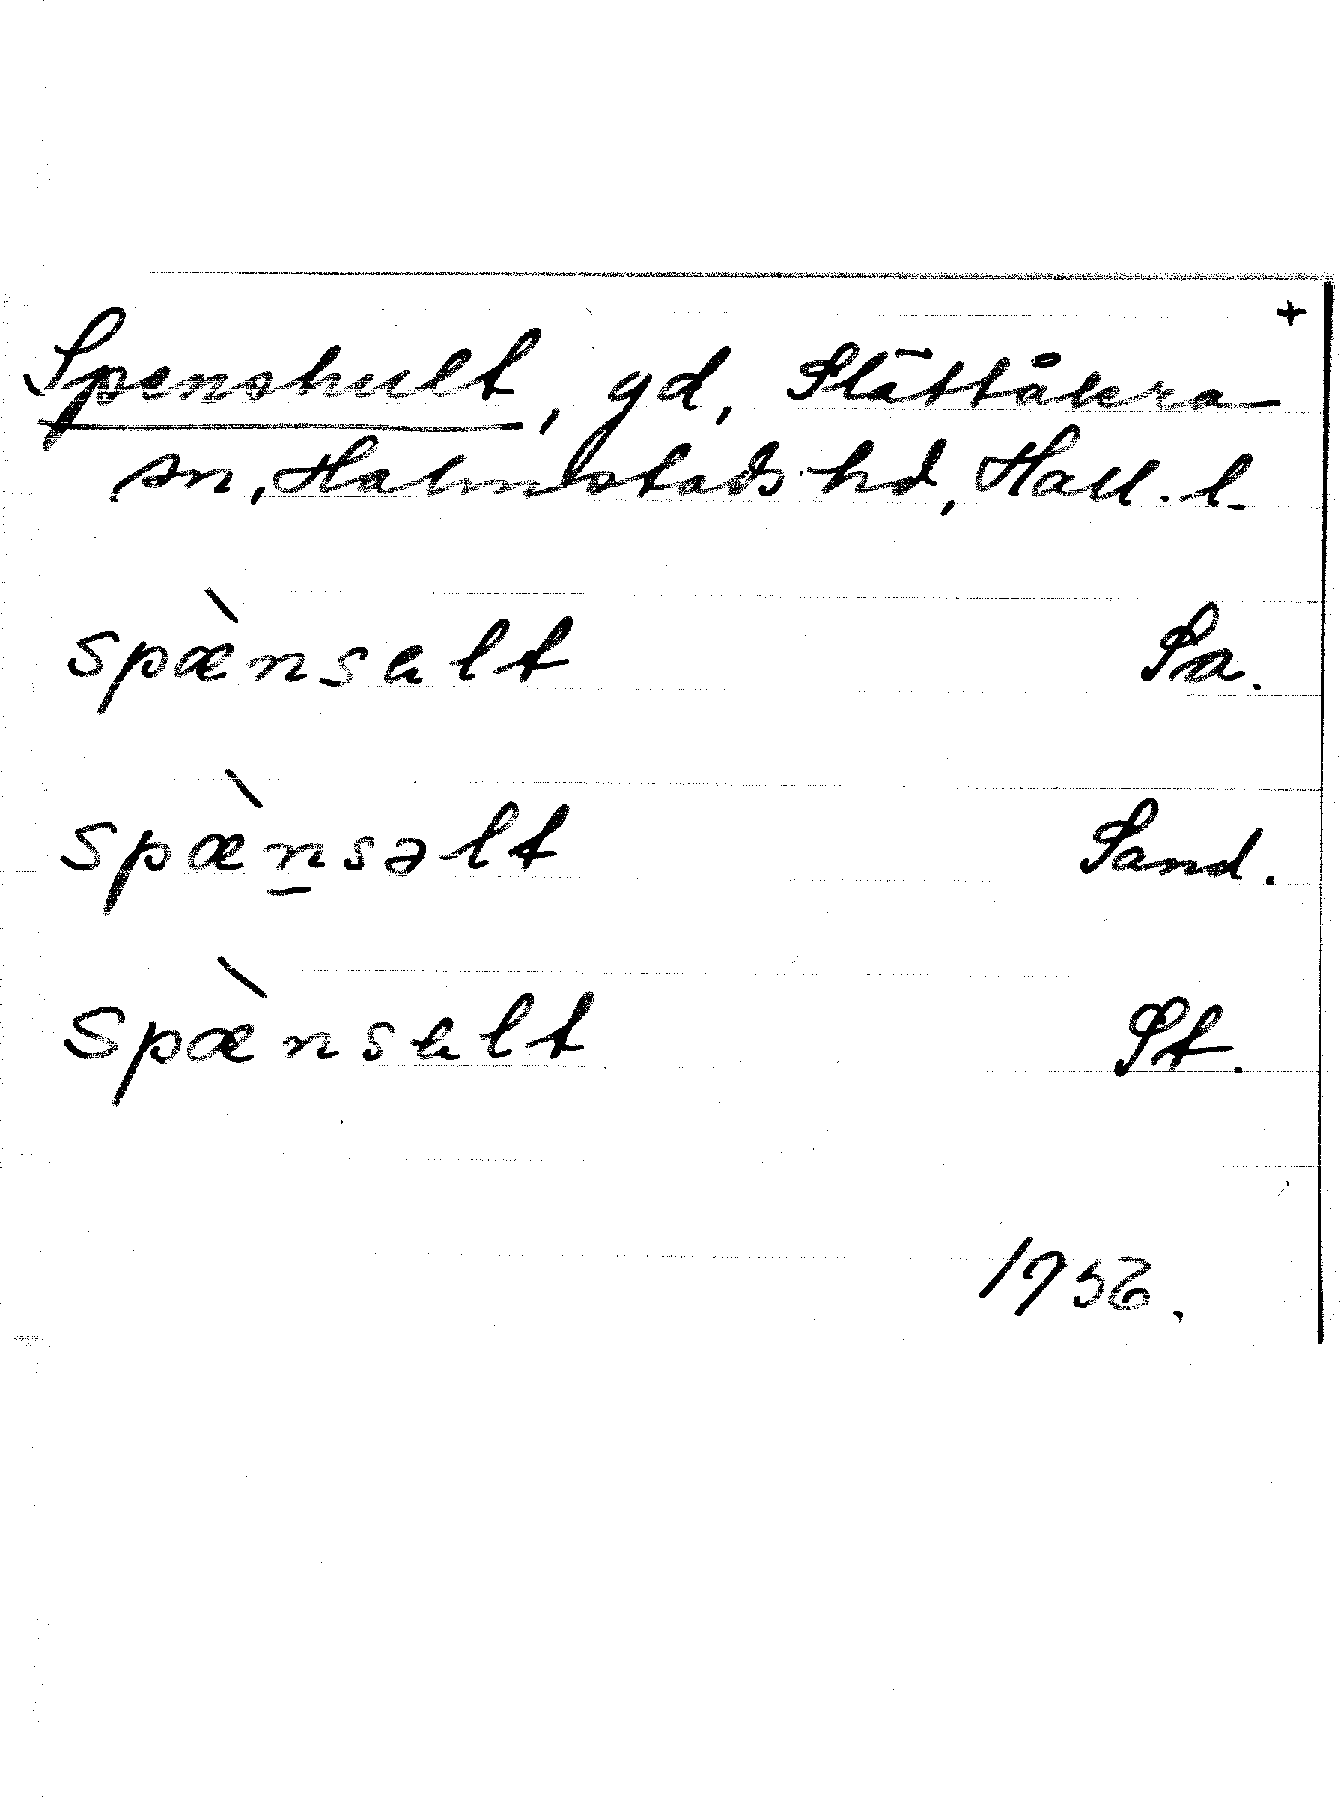 +
Spenshult, gd, Slättåkra
sn, Halmstads hd, Hall. l.
spæ̀nsɐlt Sa.
spæ̀n̲səlt Sand.
spæ̀nsɐlt St.
1936.